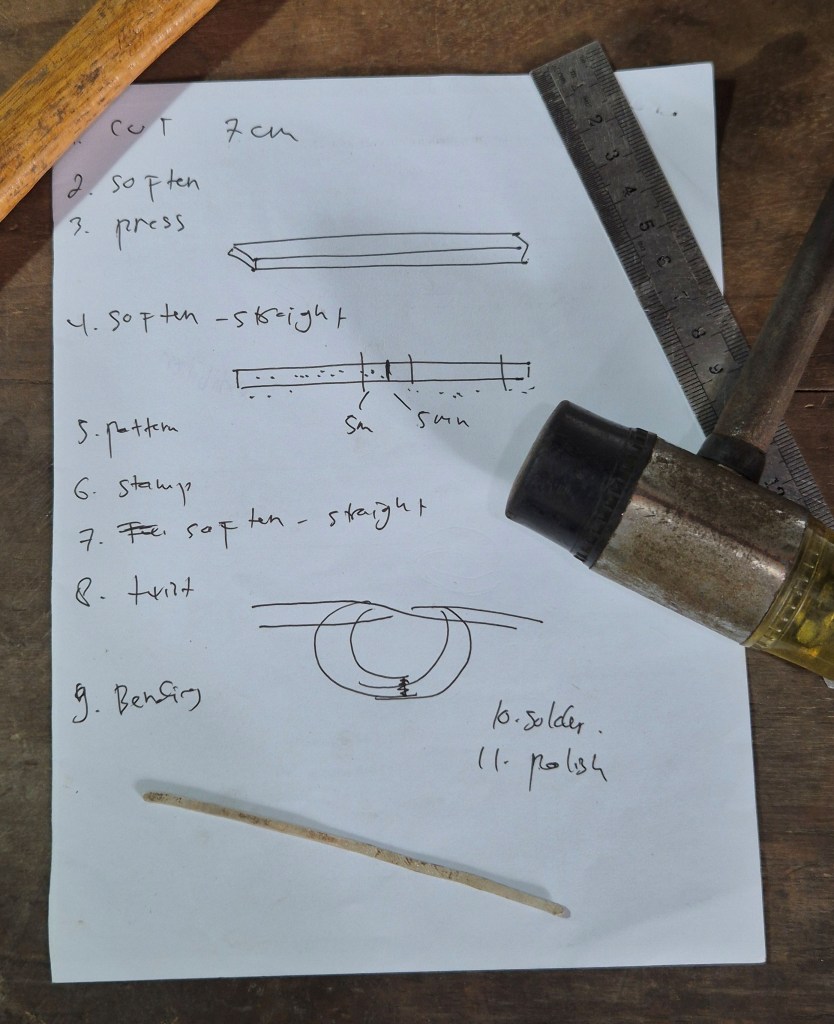 1. cut 7cm
2. soften
3. press
4. soften - straight
5mm
5. pattern
6. stamp
7. soften - straight
8. twist
9. Bending
10. solder.
11. polish
2
3
4
5
6
7
8
9
10